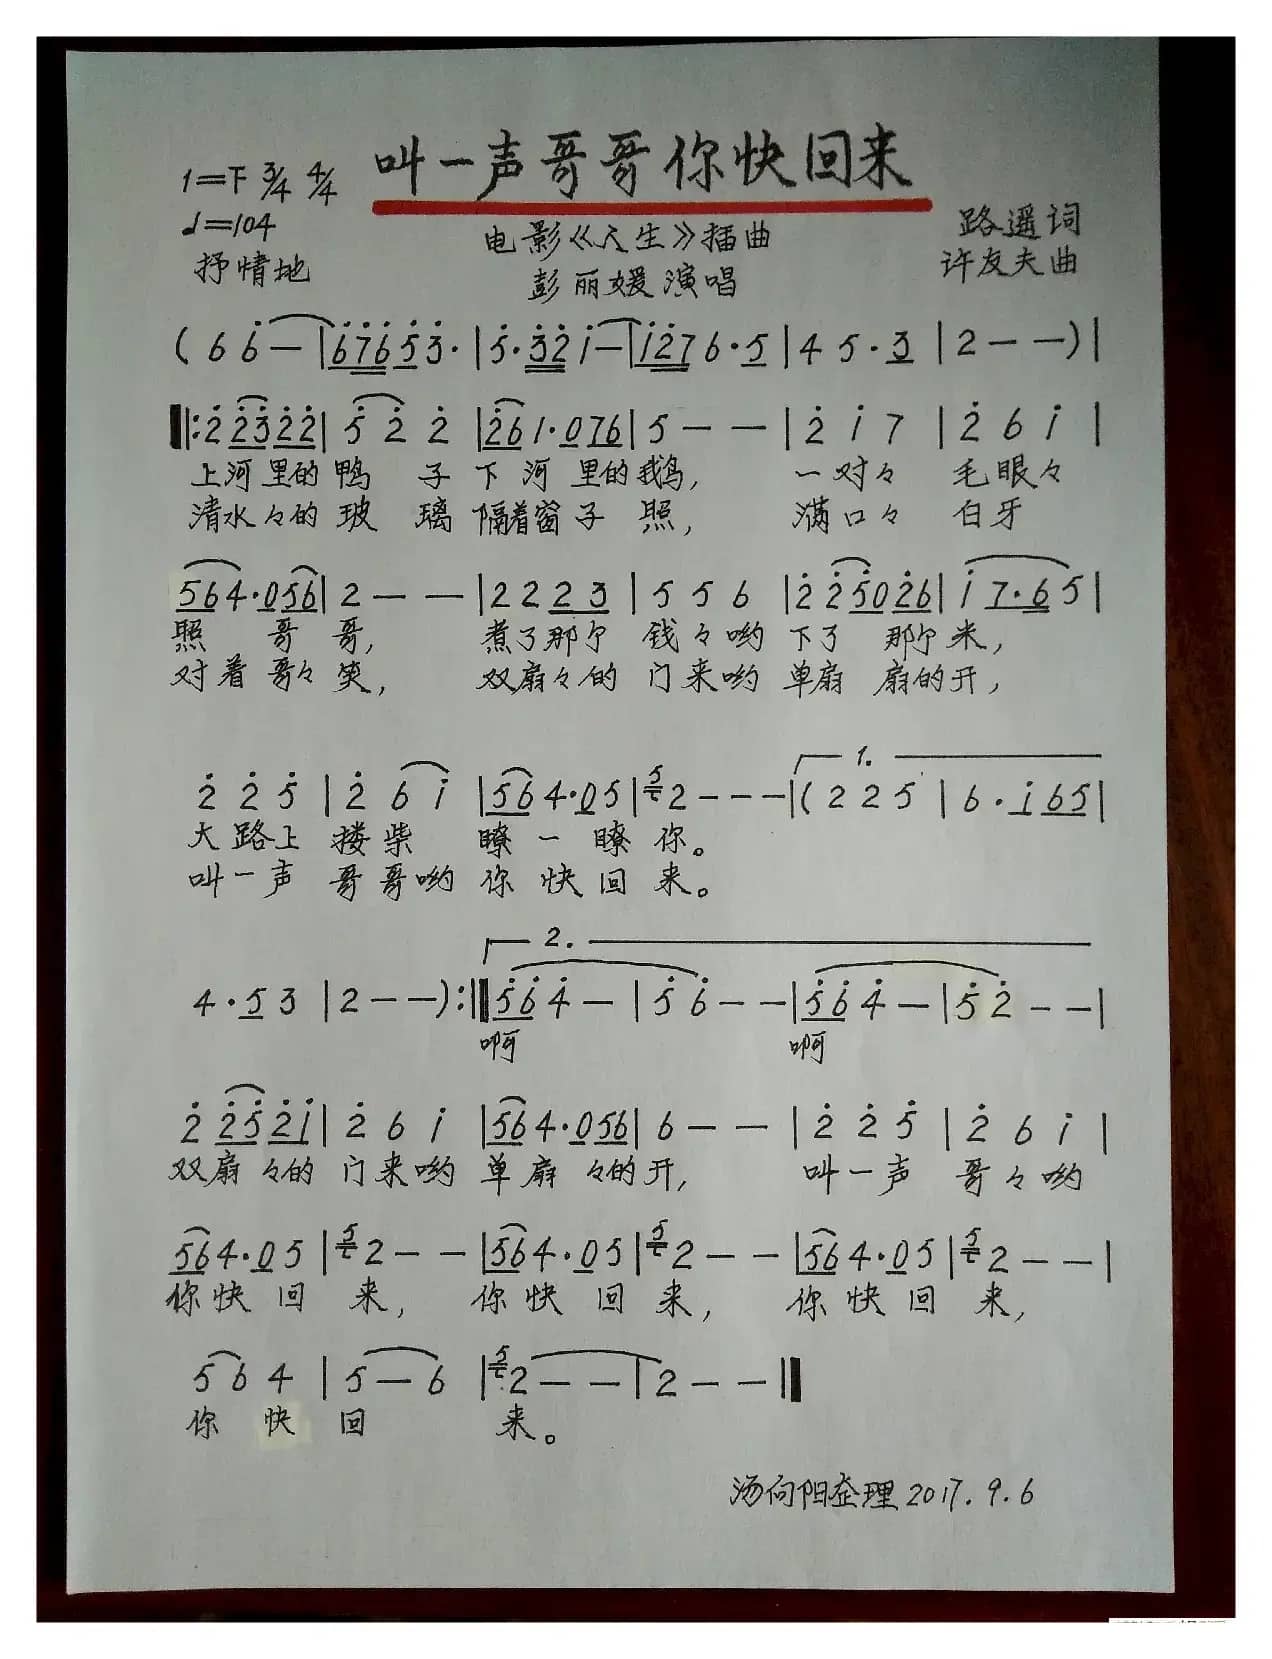 叫一声哥哥你快回来
1=下 3/4 4/4
♩=104
抒情地
电影《人生》插曲
彭丽媛演唱
路遥词
许友夫曲
( 6 i̇ — | 6̇ 7̇ 6̇ 5̇ 3̇ · | 5̇ · 3̇ 2̇ i — | i 2̇ 7 6 · 5 | 4 5 · 3 | 2 — — ) |
‖: 2̇ 2̇ 3̇ 2̇ 2̇ | 5̇ 2̇ 2̇ | 2̇ 6 1 · 0 7 6 | 5 — — | 2̇ i 7 | 2̇ 6 i |
上河里的鸭 子 下 河 里的鹅, 一对々 毛眼々
清水々的玻 璃 隔着窗子 照, 满口々 白牙
5 6 4 · 0 5 6 | 2 — — | 2 2 2 3 | 5 5 6 | 2̇ 2̇ 5̇ 0 2̇ 6 | i 7 · 6 5 |
照 哥 哥, 煮了那个 钱々哟 下了 那个米,
对着哥々笑, 双扇々的 门来哟 单扇 扇的开,
1.
2̇ 2̇ 5̇ | 2̇ 6 i | 5 6 4 · 0 5 | 5 2 — — — | ( 2 2 5 | 6 · i 6 5 |
大路上 搂柴 瞭一瞭你。
叫一声 哥哥哟 你快回来。
2.
4 · 5 3 | 2 — — ) :‖ 5̇ 6̇ 4̇ — | 5̇ 6̇ — — | 5̇ 6̇ 4̇ — | 5̇ 2̇ — — |
啊 啊
2̇ 2̇ 5̇ 2̇ i | 2̇ 6 i | 5 6 4 · 0 5 6 | 6 — — | 2̇ 2̇ 5̇ | 2̇ 6 i |
双扇々的 门来哟 单扇 々的开, 叫一声 哥々哟
5 6 4 · 0 5 | 5 2 — — | 5 6 4 · 0 5 | 5 2 — — | 5 6 4 · 0 5 | 5 2 — — |
你快回 来, 你快回 来, 你快回 来,
5 6 4 | 5 — 6 | 5 2 — — | 2 — — ‖
你 快 回 来。
汤向阳整理 2017.9.6